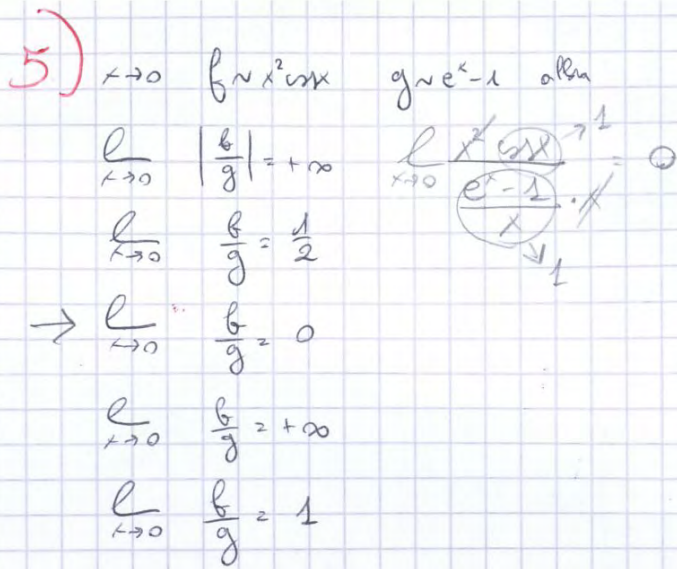 5) x→0 f ~ x² cos x g ~ e^x - 1 allora
l x→0 |f/g| = +∞ l x→0 (x² cos x)/((e^x - 1)/x · x) = 0 → 1 → 1
l x→0 f/g = 1/2
→ l x→0 f/g = 0
l x→0 f/g = +∞
l x→0 f/g = 1